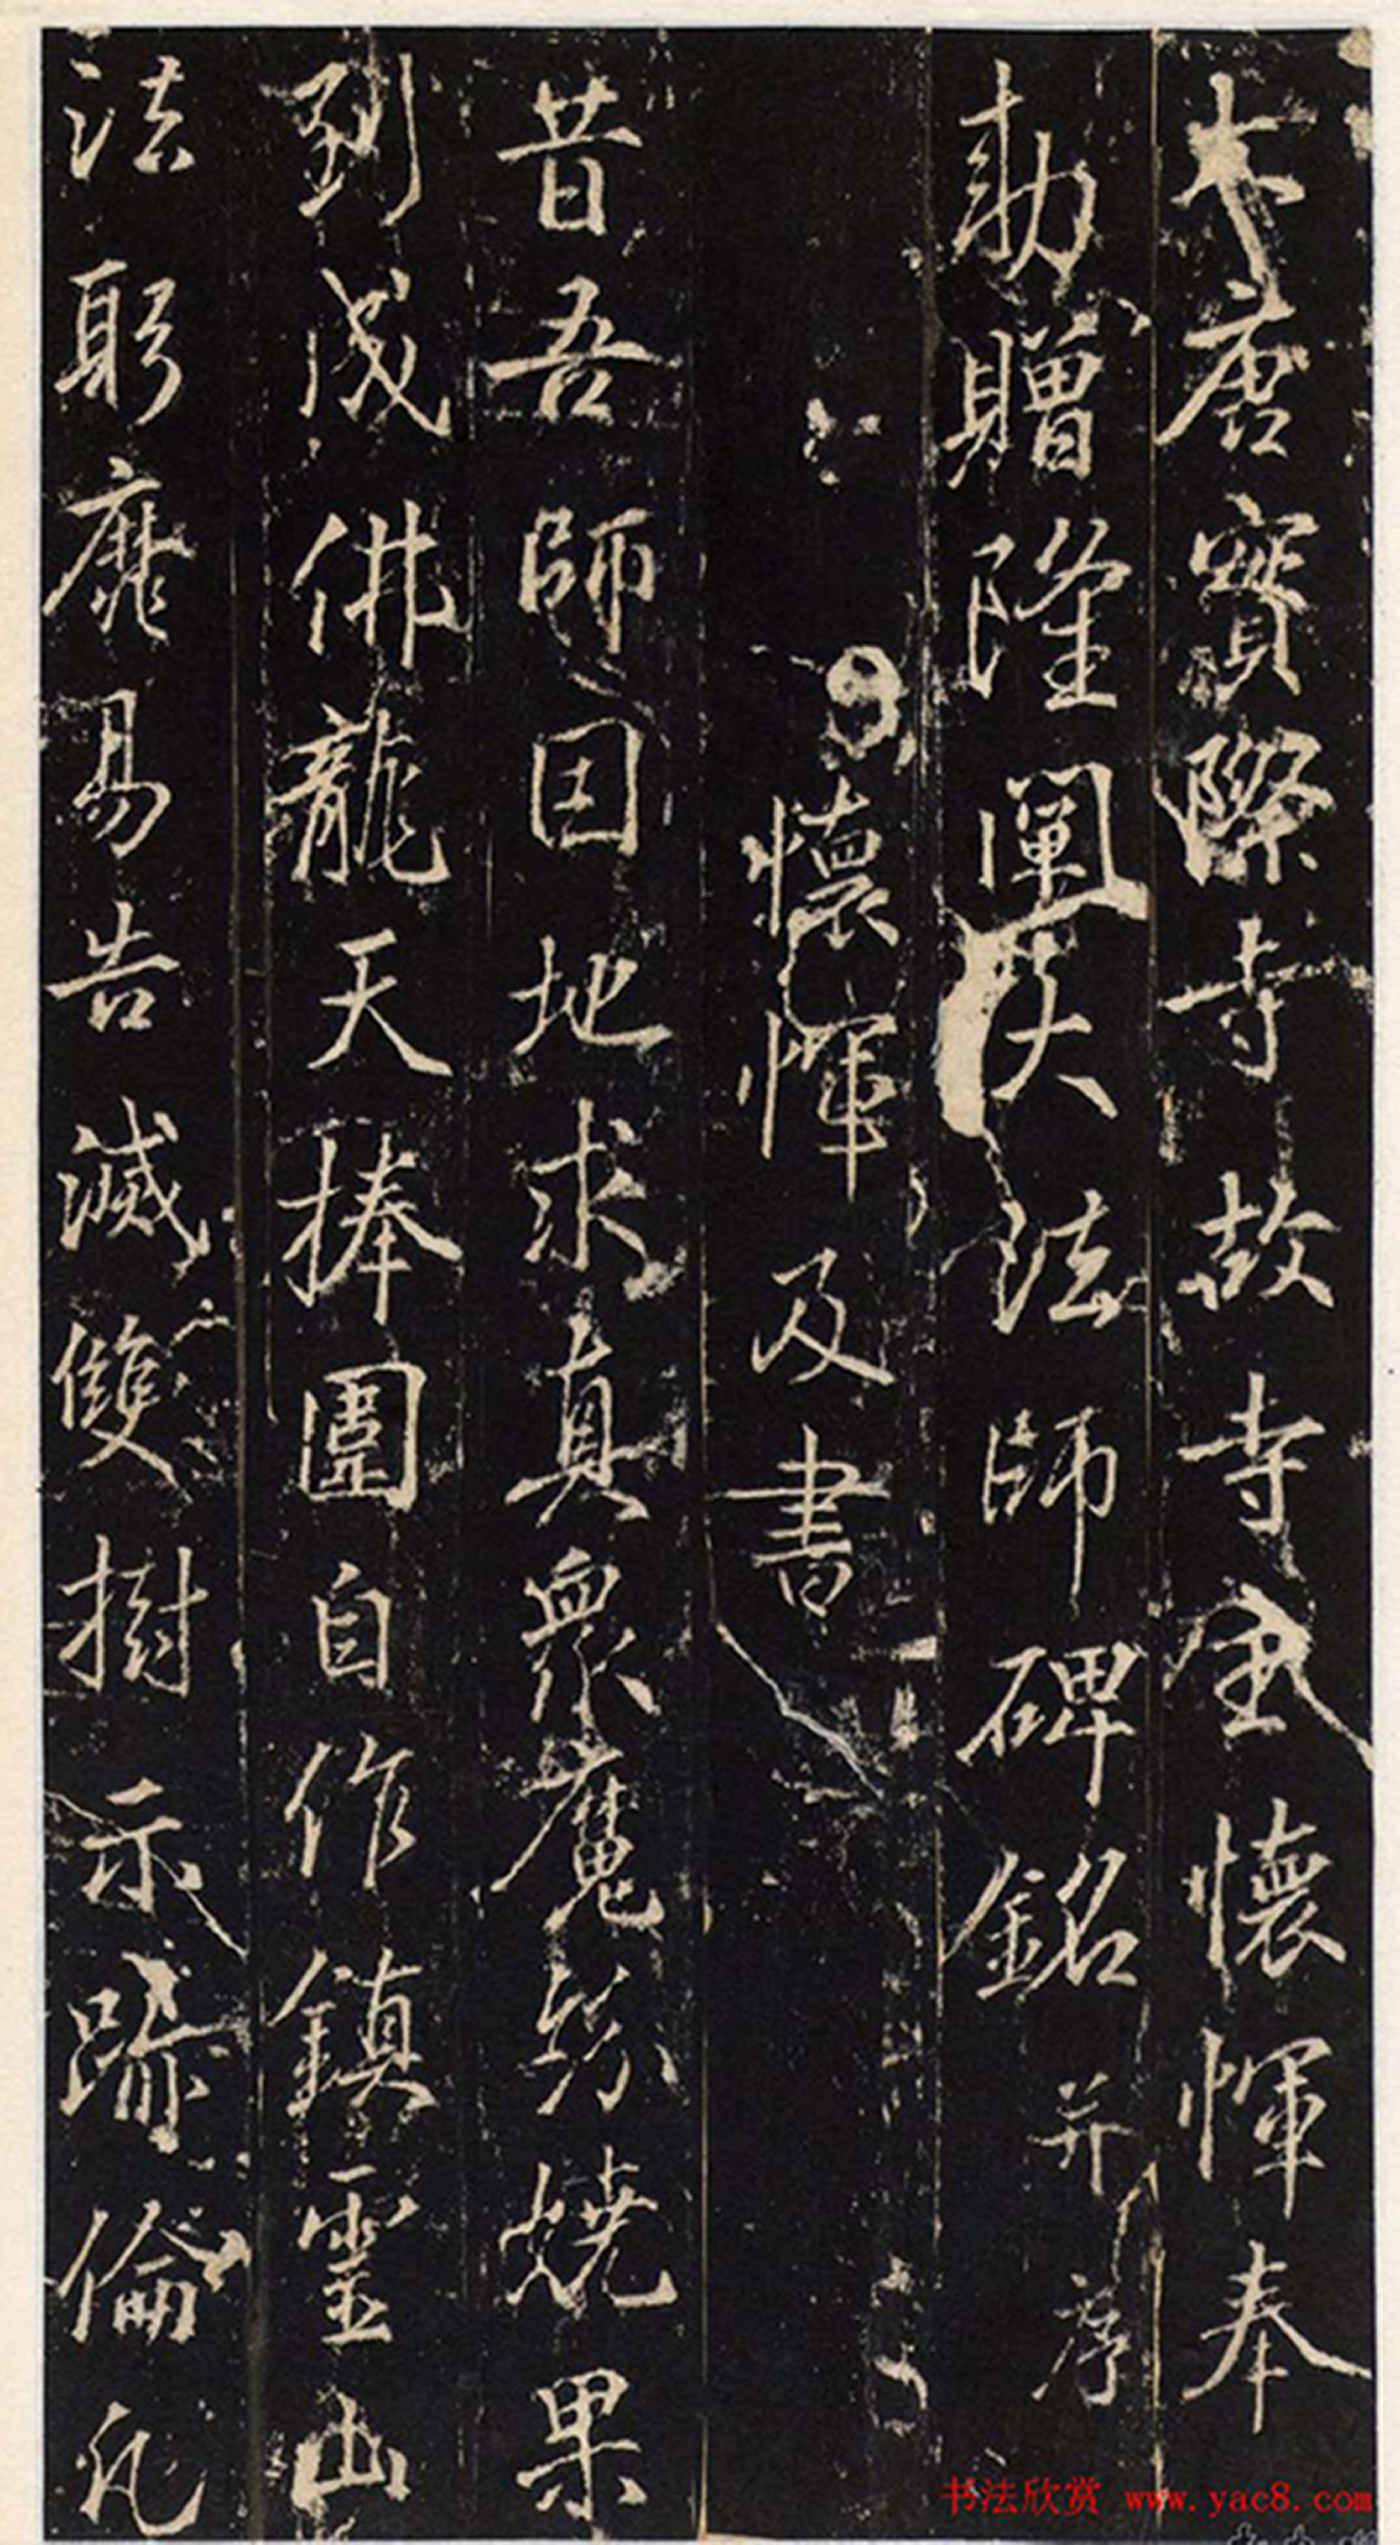 大唐實際寺故寺主懷惲奉
勅贈隆闡大法師碑銘并序
懷惲及書
昔吾師因地求真衆魔紛嬈果
到成佛龍天捧圍自作鎮靈山
法躬靡易告滅雙樹示跡倫凡
书法欣赏 www.yac8.com